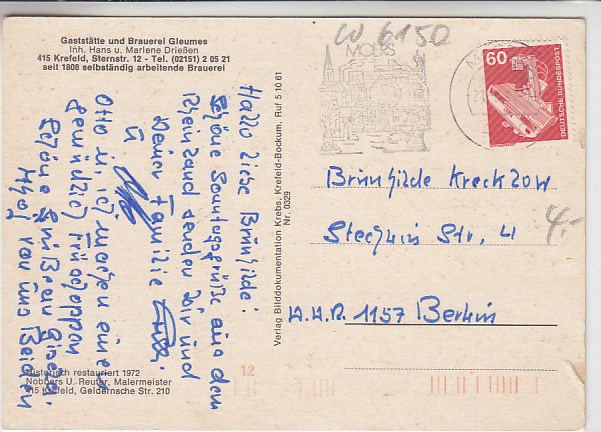 Gaststätte und Brauerei Gleumes
Inh. Hans u. Marlene Drießen
415 Krefeld, Sternstr. 12 - Tel. (02151) 2 05 21
seit 1808 selbständig arbeitende Brauerei
W 6150
MOERS
60
DEUTSCHE BUNDESPOST
Hallo liebe Brunhilde!
Schöne Sonntagsgrüße aus dem
Rheinland senden Dir und
Deiner Familie
u.
Otto u. ich machen einen
gemütlichen Frühschoppen
Schöne Grüße
von uns Beiden
Verlag Bilddokumentation Krebs, Krefeld-Bockum, Ruf 5 10 61
Nr. 0329
Brunhilde Kreckzow
Stechlin Str. 4
4.-
1157 Berlin
Historisch restauriert 1972
Nobbers U. Reuter, Malermeister
415 Krefeld, Geldernsche Str. 210
12